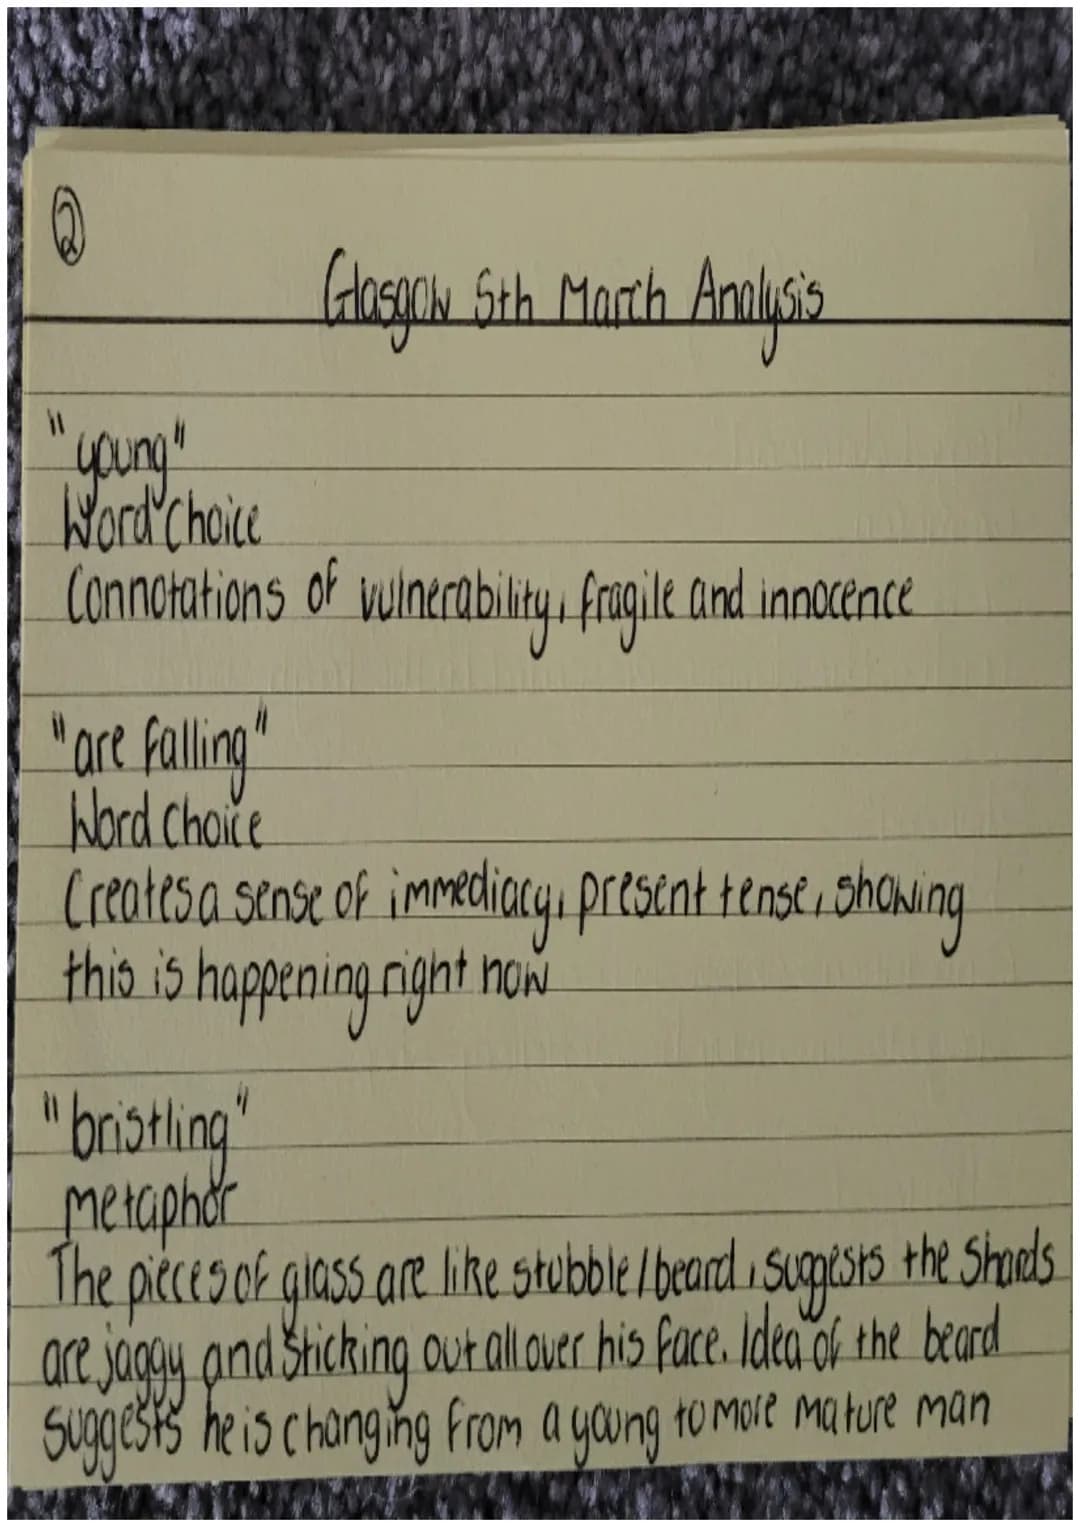 ②
Glasgow 5th March Analysis
"young"
Word Choice
Connotations of vulnerability, fragile and innocence
"are falling"
Word Choice
Creates a sense of immediacy, present tense, showing
this is happening right now
"bristling"
metaphor
The pieces of glass are like stubble/beard, suggests the Shards
are jaggy and sticking out all over his face. Idea of the beard
suggests he is changing from a young to more mature man